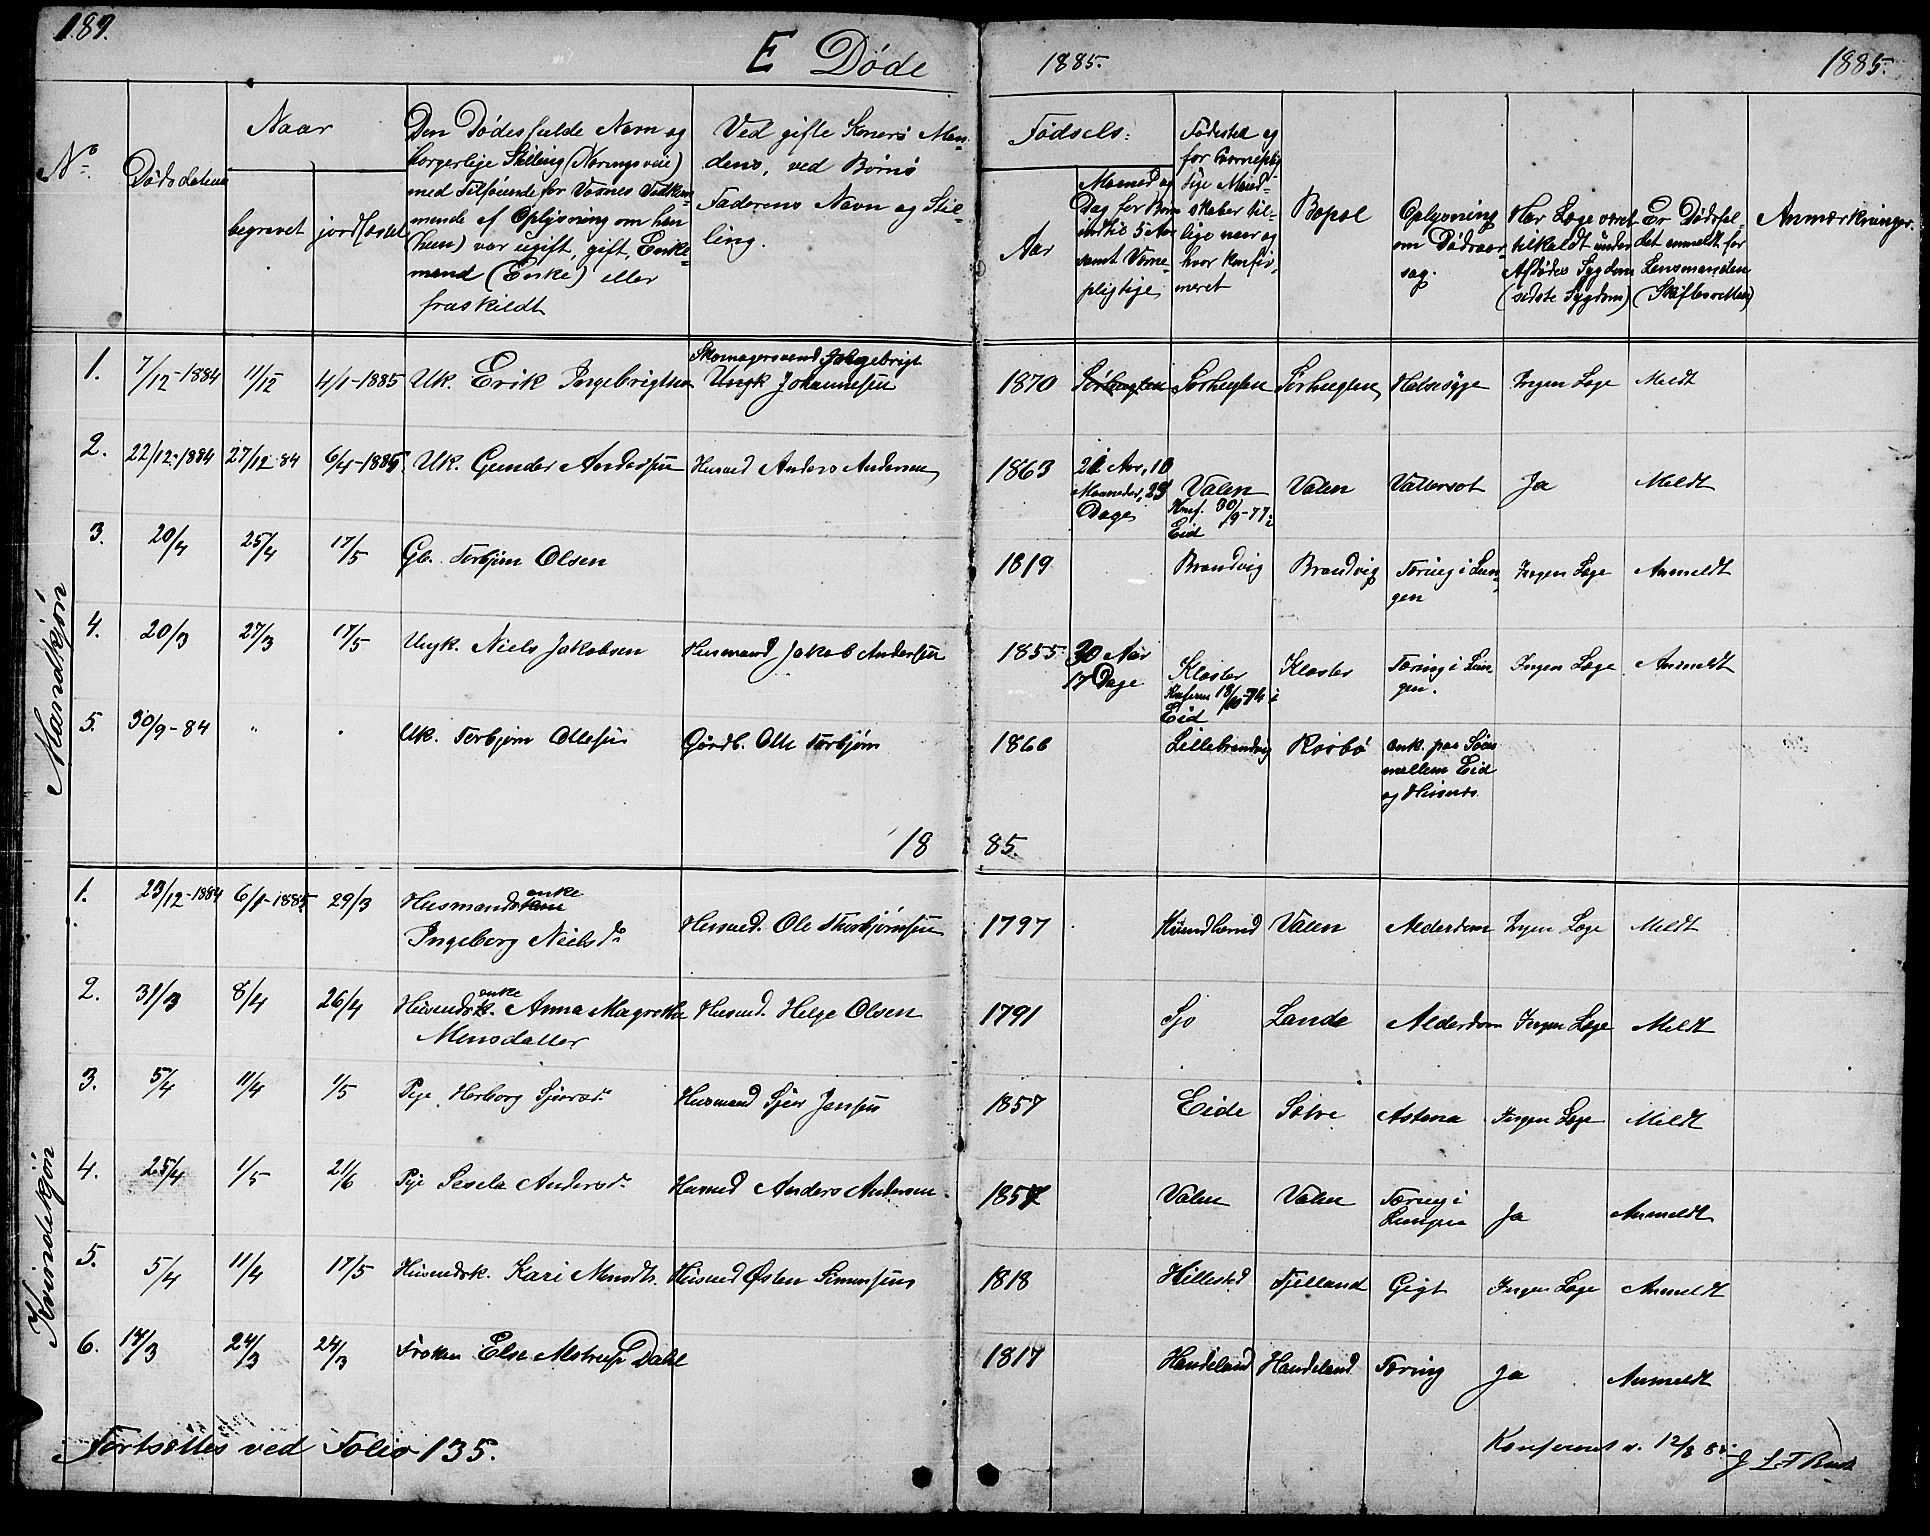 189.
E Døde
1885.
1885.
No.
Dødsdatum
Naar
begravet
jordfæstet
Den Dødes fulde Navn og
borgerlige Stilling (Næringsveie)
med Tilføiende for Voxnes Vedkom-
mende af Oplysning om han
(hun) var ugift, gift, Enke-
mand (Enke) eller
fraskildt
Ved gifte Koners Man-
dens, ved Børns
Faderens Navn og Stil-
ling.
Fødsels:
Aar
Maaned og
Dag for Børn
indtil 5 Aar
samt Værne-
pligtige
Fødested og
for Værneplig-
tige Mand-
skaber til-
lige naar og
hvor konfir-
meret
Bopæl
Oplysning
om Dødsaar-
sag.
Har Læge været
tilkaldt under
Afdødes Sygdom
(sidste Sygdom)
Er Dødsfal-
det anmeldt for
Lensmanden
(Skifteretten)
Anmærkninger.
Mandkjøn
1. 7/12-1884 11/12 4/1-1885 Uk. Erik Ingebrigtsen Skomagersvend Ingebrigt Johannesen 1870 Sørhuglen Sørhuglen Halssyge Ingen Læge Meldt
2. 22/12-1884 27/12-84 6/4-1885 Uk. Gunder Andersen Husmd Anders Andersen 1863 21 Aar, 10
Maaneder, 29
Dage Valen
Konf. 30/9-77 i
Eid Valen Vattersot Ja Meldt
3. 20/4 25/4 17/5 Gb. Torbjørn Olsen 1819 Brandvig Brandvig Tæring i Lun-
gen Ingen Læge Anmeldt
4. 20/3 27/3 17/5 Ungk. Niels Jakobsen Husmand Jakob Andersen 1855 30 Aar
17 Dage Kloster
Konfirm 18/10 74 i
Eid Kloster Tæring i Lun-
gen. Ingen Læge Anmeldt
5. 30/9-84 " " Uk. Torbjørn Ollesen Gårdb. Olle Torbjørn 1866 Lillebrandvig Rosbø omk. paa Søen
mellem Eid
og
18 85.
Kvindekjøn
1. 23/12-1884 6/1-1885 29/3 Husmandsenke
Ingeborg Nielsdr Husmd. Ole Thorbjørnsen 1797 Valen Alderdom Ingen Læge Meldt
2. 31/3 8/4 26/4 Husmdsenke Anna Magrethe
Monsdatter Husmd. Helge Olsen 1791 Sjo Lande Alderdom Ingen Læge Meldt
3. 5/4 11/4 1/5 Pige Herborg Sjursdr Husmand Sjur Jensen 1857 Eide Sætre Astma Ingen Læge Meldt
4. 25/4 1/5 21/6 Pige Sesela Andersdr Husmd Anders Andersen 1857 Valen Valen Tæring i
Lungen Ja Anmeldt
5. 5/4 11/4 17/5 Husmdsk. Kari Monsdtr. Husmd Østen Simonsen 1818 Hillestad Fjelland Gigt Ingen Læge Anmeldt
6. 14/3 24/3 24/3 Frøken Else Alstrup Dahl 1817 Handeland Handeland Tæring Ja Anmeldt
Fortsættes ved Folio 135.
Konfereret d. 12/8 85